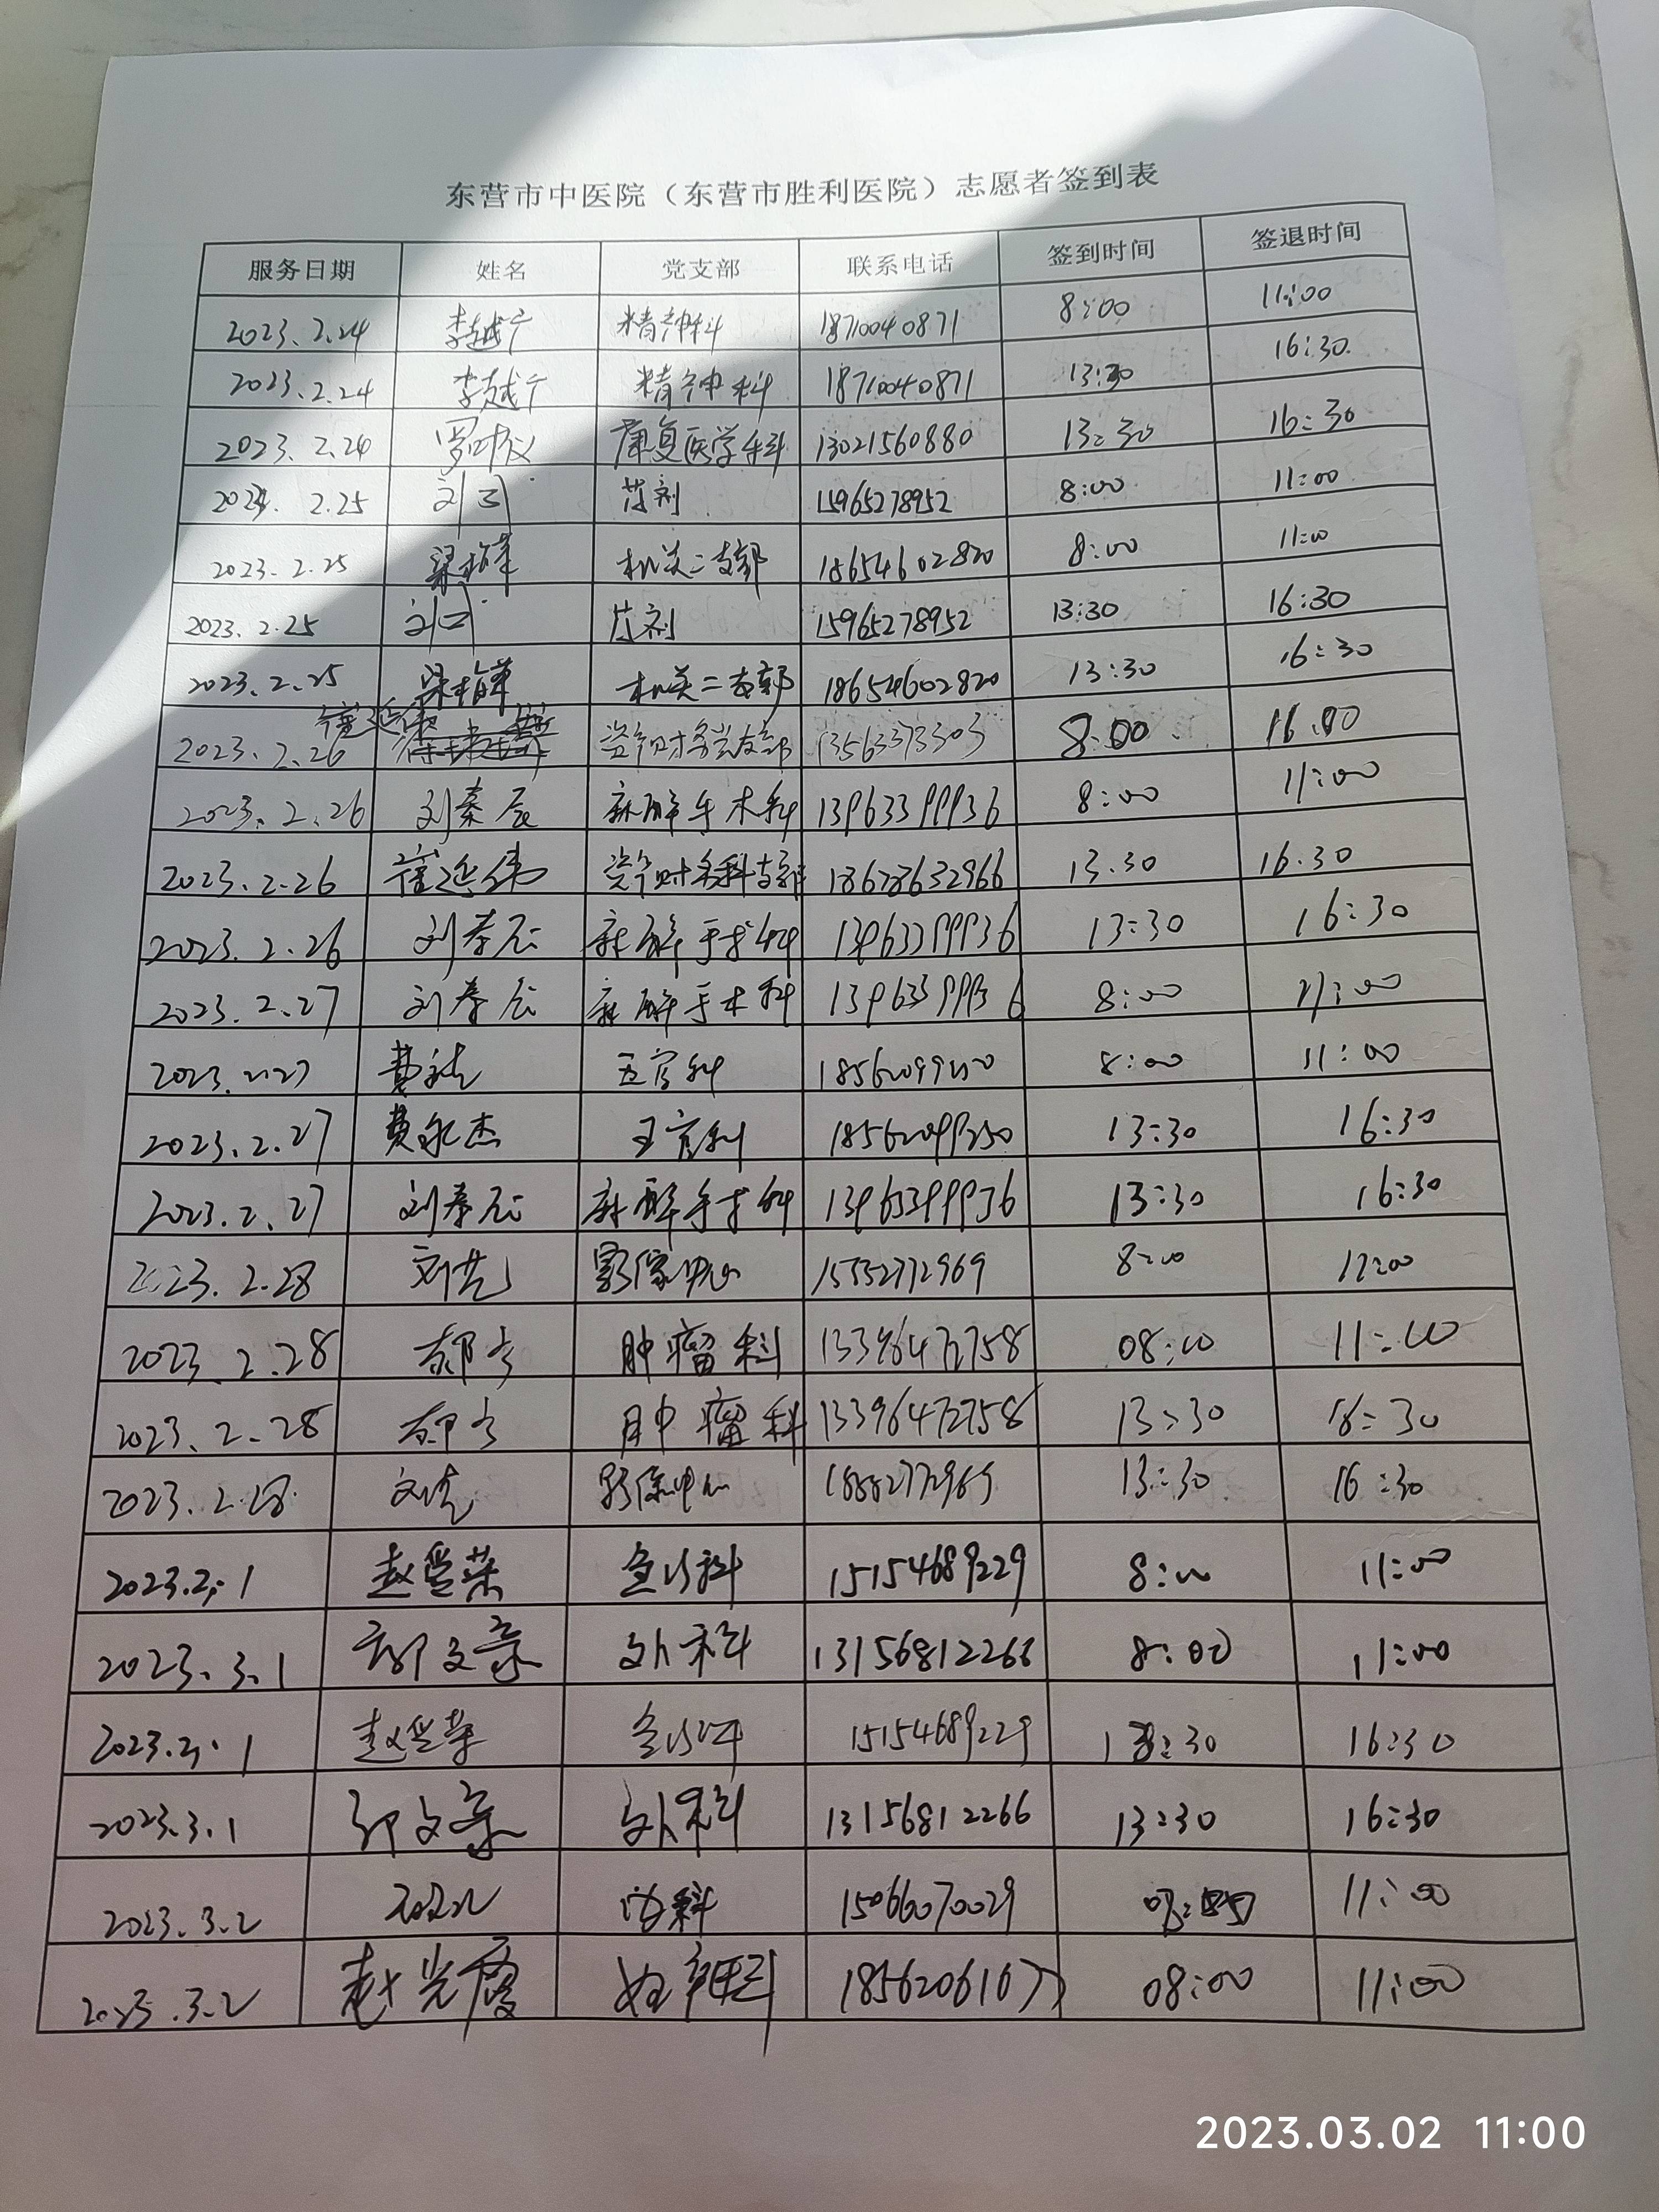 东营市中医院（东营市胜利医院）志愿者签到表
服务日期 姓名 党支部 联系电话 签到时间 签退时间
2023.2.24 李越宁 精神科 18710040871 8:00 11:00
2023.2.24 李越宁 精神科 18710040871 13:30 16:30
2023.2.24 康复医学科 13021560880 13:30 16:30
2.25 药剂 15965278952 8:00 11:00
2023.2.25 机关二支部 18654602820 8:00 11:00
2023.2.25 药剂 15965278952 13:30 16:30
2023.2.25 机关二支部 18654602820 13:30 16:30
2023.2.26 崔延伟 13563373303 8:00
2023.2.26 刘秦辰 麻醉手术科 13963399936 8:00 11:00
2023.2.26 崔延伟 18678632966 13:30 16:30
2023.2.26 刘秦辰 麻醉手术科 13963399936 13:30 16:30
2023.2.27 刘秦辰 麻醉手术科 13963399936 8:00 11:00
2023.2.27 五官科 8:00 11:00
2023.2.27 费永杰 五官科 13:30 16:30
2023.2.27 刘秦辰 麻醉手术科 13963399936 13:30 16:30
2023.2.28 影像中心 8:00 11:00
2023.2.28 肿瘤科 13396472758 08:00 11:00
2023.2.28 肿瘤科 13396472758 13:30 16:30
2023.2.28 影像中心 13:30 16:30
2023.3.1 15154689229 8:00 11:00
2023.3.1 外科 13156812266 8:00 11:00
2023.3.1 15154689229 13:30 16:30
2023.3.1 外科 13156812266 13:30 16:30
2023.3.2 15066070029 11:00
2023.3.2 赵光霞 08:00 11:00
2023.03.02 11:00